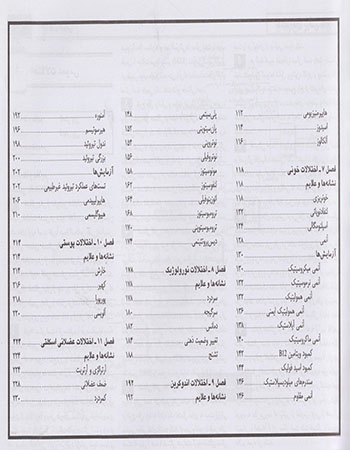 هایپرمنیزیومی ۱۱۲
اسیدوز ۱۱۴
آلکالوز ۱۱۶
فصل ۷ ـ اختلالات خونی ۱۱۸
نشانه‌ها و علایم ۱۱۸
خونریزی ۱۱۸
لنفادنوپاتی ۱۲۲
اسپلنومگالی ۱۲۴
آنمی ۱۲۸
آزمایش‌ها ۱۳۰
آنمی میکروسیتیک ۱۳۰
آنمی نرموسیتیک ۱۳۲
آنمی همولیتیک ۱۳۲
آنمی همولیتیک ایمنی ۱۳۶
آنمی آپلاستیک ۱۳۸
آنمی ماکروسیتیک ۱۴۰
کمبود ویتامین B12 ۱۴۲
کمبود اسید فولیک ۱۴۴
سندرم‌های میلودیسپلاستیک ۱۴۶
آنمی مقاوم ۱۴۶
پلی‌سیتمی ۱۴۸
پان‌سیتوپنی ۱۵۲
نوتروپنی ۱۵۴
نوتروفیلی ۱۵۶
مونوسیتوز ۱۵۸
لنفوسیتوز ۱۶۲
ائوزینوفیلی ۱۶۴
ترومبوسیتوز ۱۶۸
ترومبوسیتوپنی ۱۷۰
دیس‌پروتئینمی ۱۷۴
فصل ۸ ـ اختلالات نورولوژیک ۱۷۸
نشانه‌ها و علایم ۱۷۸
سردرد ۱۷۸
سرگیجه ۱۸۰
دمانس ۱۸۲
تغییر وضعیت ذهنی ۱۸۴
تشنج ۱۸۸
فصل ۹ ـ اختلالات اندوکرین ۱۹۲
نشانه‌ها و علایم ۱۹۲
آمنوره ۱۹۲
هیرسوتیسم ۱۹۶
ندول تیروئید ۱۹۸
بزرگی تیروئید ۲۰۰
آزمایش‌ها ۲۰۲
تست‌های عملکرد تیروئید غیرطبیعی ۲۰۲
هایپرلیپیدمی ۲۰۶
هیپوگلیسمی ۲۱۰
فصل ۱۰ ـ اختلالات پوستی ۲۱۴
نشانه‌ها و علایم ۲۱۴
خارش ۲۱۴
کهیر ۲۱۶
پورپورا ۲۱۸
آلوپسی ۲۲۰
فصل ۱۱ ـ اختلالات عضلانی اسکلتی ۲۲۴
نشانه‌ها و علایم ۲۲۴
آرترالژی و آرتریت ۲۲۴
ضعف عضلانی ۲۲۸
کمردرد ۲۳۰